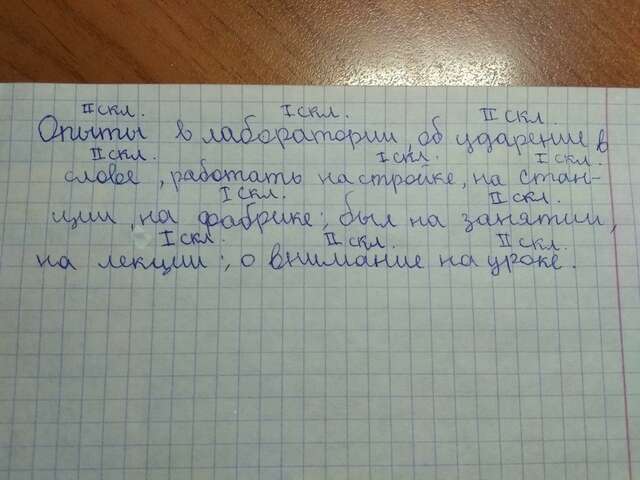 II скл. I скл. II скл.
Опыты в лаборатории, об ударение в
II скл. I скл. I скл.
слове, работать на стройке, на стан-
I скл. II скл.
ции, на фабрике; был на занятии,
I скл. II скл. II скл.
на лекции; о внимание на уроке.